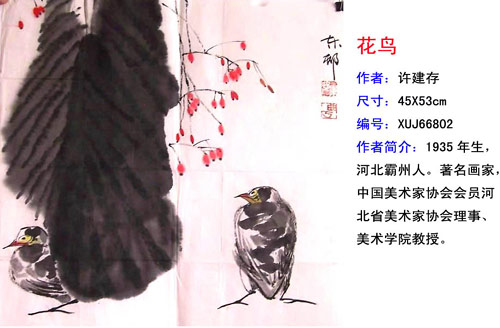 花鸟
作者：许建存
尺寸：45X53cm
编号：XUJ66802
作者简介：1935 年生，
河北霸州人。著名画家，
中国美术家协会会员河
北省美术家协会理事、
美术学院教授。